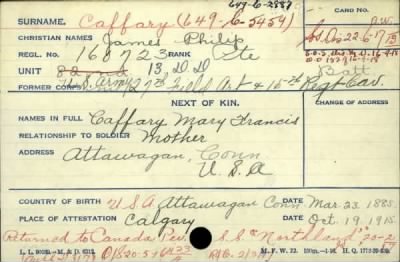 649-6-2887
SURNAME. Caffary (649-C-5454) CARD NO.
CHRISTIAN NAMES James Philip
REGL. NO. 160723 RANK Pte
UNIT 13, D.D Batt
FORMER CORPS U.S. Army 27th Field Art & 15th Regt Cav.
NEXT OF KIN. CHANGE OF ADDRESS
NAMES IN FULL Caffary Mary Francis
RELATIONSHIP TO SOLDIER Mother
ADDRESS Attawagan, Conn
U.S.A
COUNTRY OF BIRTH U S A Attawagan Conn. Mar. 23. 1885
PLACE OF ATTESTATION Calgary Oct. 19. 1915
Returned to Canada Per. S.S. "Northland" 20-2
M. F. W. 22.